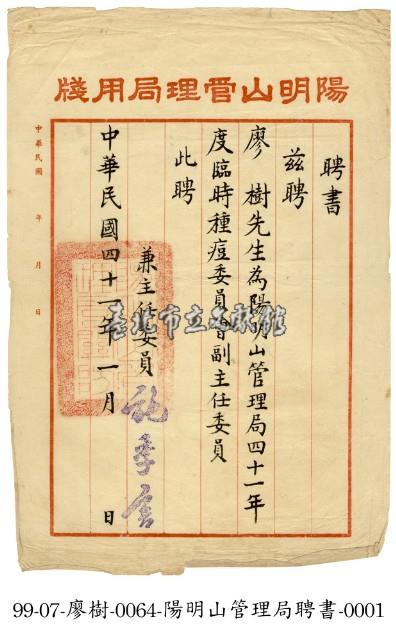 陽明山管理局用牋
聘書
茲聘
廖 樹先生為陽明山管理局四十一年
度臨時種痘委員會副主任委員
此聘
兼主任委員 施季言
中華民國四十一年一月 日
中華民國 年 月 日
臺北市立文獻館
99-07-廖樹-0064-陽明山管理局聘書-0001